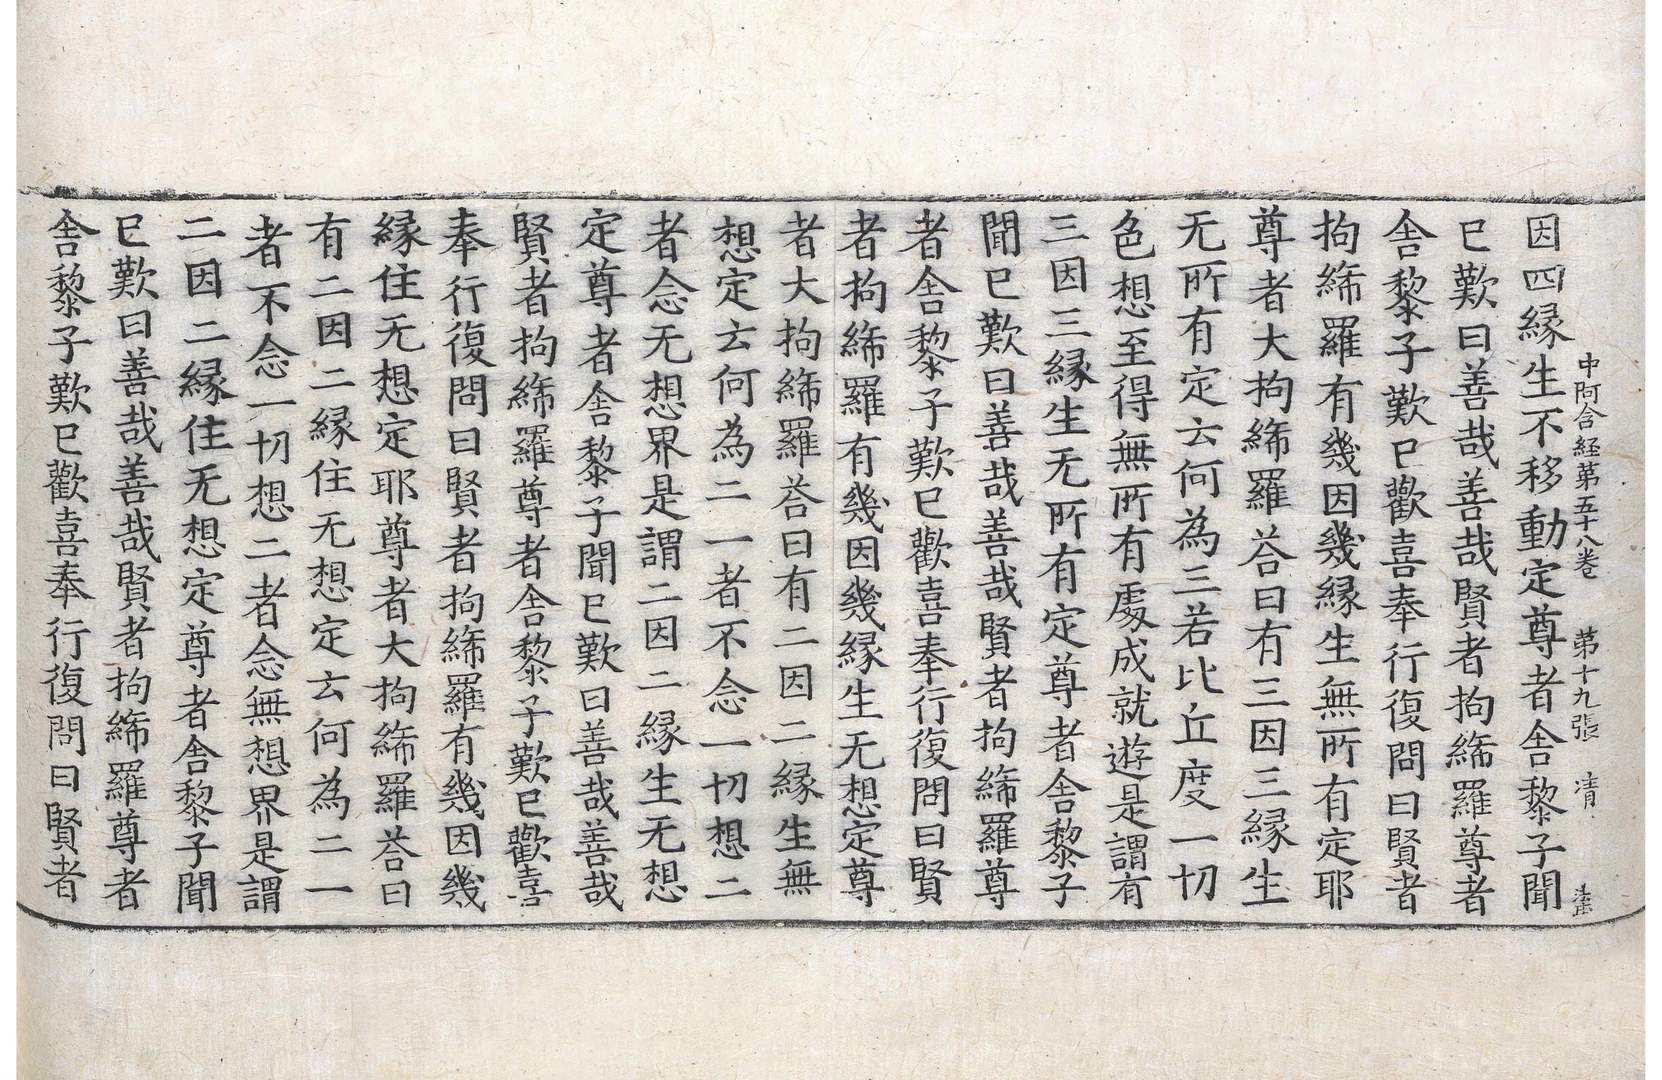 中阿含経第五十八卷　第十九張　清
因四縁生不移動定尊者舎黎子聞
已歎曰善哉善哉賢者拘絺羅尊者
舎黎子歎已歡喜奉行復問曰賢者
拘絺羅有幾因幾縁生無所有定耶
尊者大拘絺羅荅曰有三因三縁生
无所有定云何為三若比丘度一切
色想至得無所有處成就遊是謂有
三因三縁生无所有定尊者舎黎子
聞已歎曰善哉善哉賢者拘絺羅尊
者舎黎子歎已歡喜奉行復問曰賢
者拘絺羅有幾因幾縁生无想定尊
者大拘絺羅荅曰有二因二縁生無
想定云何為二一者不念一切想二
者念无想界是謂二因二縁生无想
定尊者舎黎子聞已歎曰善哉善哉
賢者拘絺羅尊者舎黎子歎已歡喜
奉行復問曰賢者拘絺羅有幾因幾
縁住无想定耶尊者大拘絺羅荅曰
有二因二縁住无想定云何為二一
者不念一切想二者念無想界是謂
二因二縁住无想定尊者舎黎子聞
已歎曰善哉善哉賢者拘絺羅尊者
舎黎子歎已歡喜奉行復問曰賢者